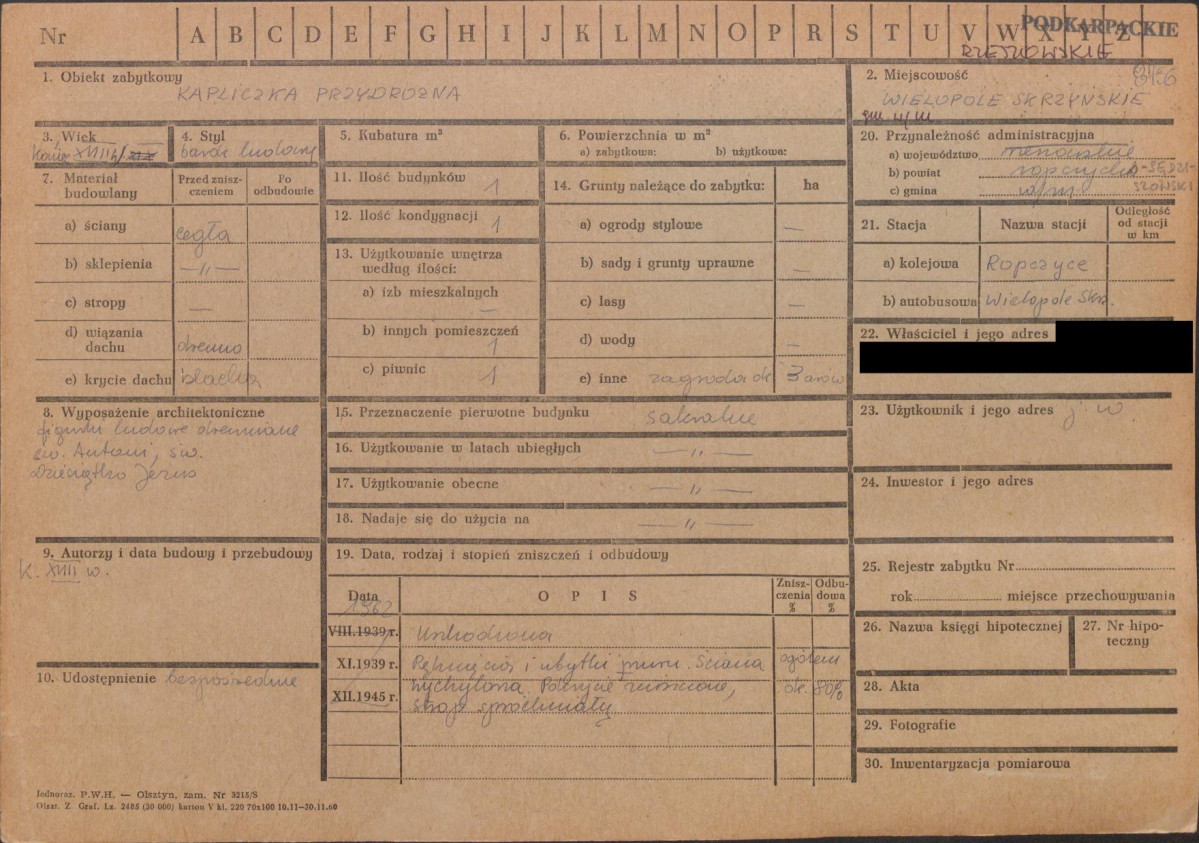 Nr A B C D E F G H I J K L M N O P R S T U V W X Y Z
PODKARPACKIE
RZESZOWSKIE
1. Obiekt zabytkowy
KAPLICZKA PRZYDROŻNA
2. Miejscowość
WIELOPOLE SKRZYŃSKIE
gm w/m
3. Wiek
koniec XVIII w/
4. Styl
barok ludowy
5. Kubatura m³
6. Powierzchnia w m²
a) zabytkowa: b) użytkowa:
7. Materiał budowlany
Przed zniszczeniem
Po odbudowie
a) ściany cegła
b) sklepienia —„—
c) stropy —
d) wiązania dachu drewno
e) krycie dachu blacha
8. Wyposażenie architektoniczne
figurki ludowe drewniane
św. Antoni, św.
Dzieciątko Jezus
9. Autorzy i data budowy i przebudowy
K. XVIII w.
10. Udostępnienie bezpośrednie
11. Ilość budynków 1
12. Ilość kondygnacji 1
13. Użytkowanie wnętrza według ilości:
a) izb mieszkalnych —
b) innych pomieszczeń 1
c) piwnic 1
14. Grunty należące do zabytku: ha
a) ogrody stylowe —
b) sady i grunty uprawne —
c) lasy —
d) wody —
e) inne zagroda ok 3 arów
15. Przeznaczenie pierwotne budynku sakralne
16. Użytkowanie w latach ubiegłych —„—
17. Użytkowanie obecne —„—
18. Nadaje się do użycia na —„—
19. Data, rodzaj i stopień zniszczeń i odbudowy
Data OPIS Zniszczenia % Odbudowa %
1962
VIII.1939 r. Uszkodzona
XI.1939 r. Pęknięcia i ubytki muru. Ściana ogółem
XII.1945 r. wychylona. Pokrycie zniszczone, ok. 80%
stropy spróchniały
20. Przynależność administracyjna
a) województwo rzeszowskie
b) powiat ropczycko-SĘDZI-
SZOWSKI
c) gmina w/m
21. Stacja Nazwa stacji Odległość od stacji w km
a) kolejowa Ropczyce
b) autobusowa Wielopole Skrz.
22. Właściciel i jego adres
23. Użytkownik i jego adres j. w.
24. Inwestor i jego adres
25. Rejestr zabytku Nr
rok miejsce przechowywania
26. Nazwa księgi hipotecznej
27. Nr hipoteczny
28. Akta
29. Fotografie
30. Inwentaryzacja pomiarowa
Jednoraz. P.W.H. — Olsztyn, zam. Nr 3215/S
Olszt. Z. Graf. Lz. 2485 (30 000) karton V kl. 220 70x100 10.11—30.11.60